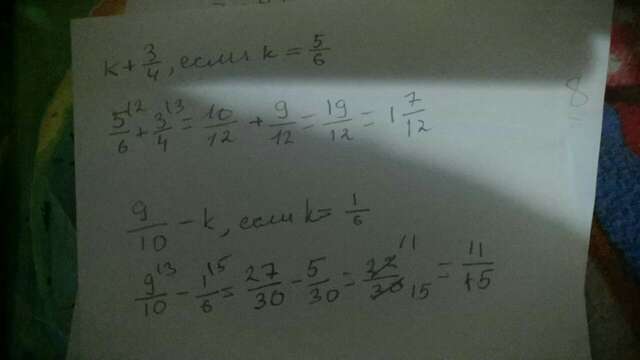 k + 3/4, если k = 5/6
5/6 ^12 + 3/4 ^13 = 10/12 + 9/12 = 19/12 = 1 7/12
9/10 - k, если k = 1/6
9/10 ^13 - 1/6 ^15 = 27/30 - 5/30 = 22/30 11/15 = 11/15